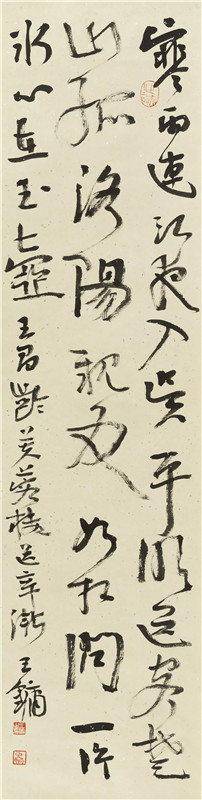 寒雨連江夜入吳平明送客楚
山孤洛陽親友如相問一片
冰心在玉壺王昌齡芙蓉樓送辛漸王鏞